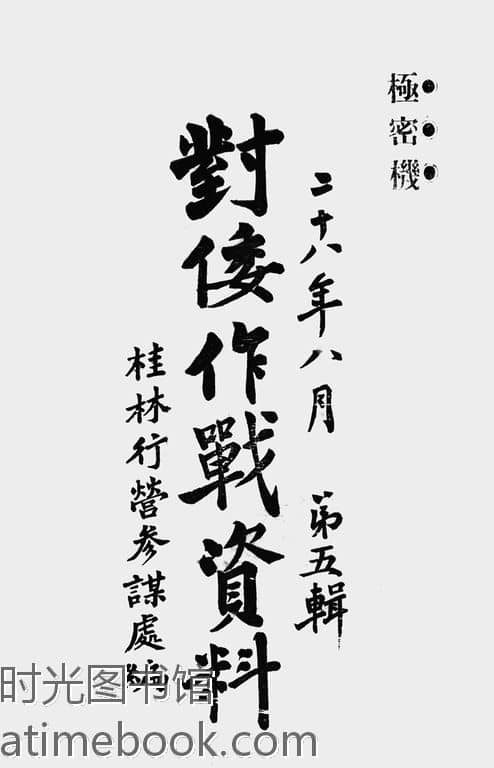 極密機
二十八年八月 第五輯
對倭作戰資料
桂林行營參謀處編
时光图书馆
atimebook.com